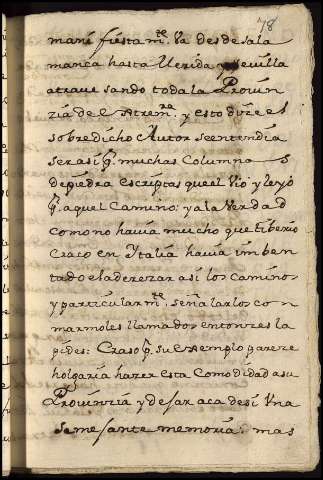 78
mani fiesta m.te Va desde sala
manca hasta Merida y sevilla
atrave sando toda la Provin
zia de Estrem.ra y esto dize el
sobredicho Autor se entendia
ser asi q. muchas Columna s
de piedra escriptas que el Vio y leyó
q. aquel Camino: ya la Verda d
como no havia mucho que tiberio
Graco en Italia havia imben
tado el aderezar así los caminos
y particularm.te señalarlos con
marmoles llamados entonzes la
pides: Craso q. su exemplo pareze
holgaria hazer esta Comodidad a su
Provinzia y dejar aca de si Una
semejante memoria: mas